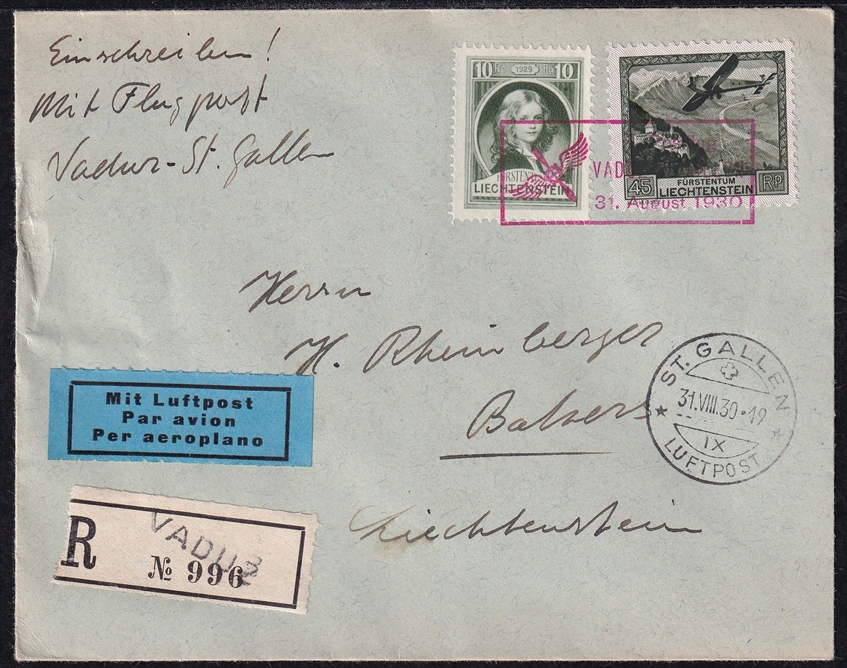 Einschreiben!
Mit Flugpost
Vaduz-St. Gallen
10 1929 10
FÜRSTENTUM
LIECHTENSTEIN
45 FÜRSTENTUM RP
LIECHTENSTEIN
VADUZ
31. August 1930
Herrn
H. Rheinberger
Balzers
Liechtenstein
ST. GALLEN
31.VIII.30·19
IX
LUFTPOST
Mit Luftpost
Par avion
Per aeroplano
R VADUZ
№ 996